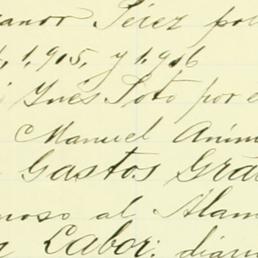 Pérez po
1,915, y 1,916
Ynés Soto por e
Manuel
Gastos Gra
moso al Alam
Labor: diari